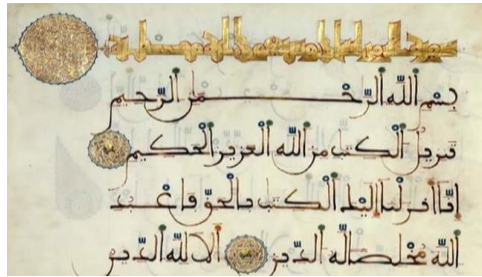 بسم الله الرحمن الرحيم
تنزيل الكتب من الله العزيز الحكيم
انا انزلنا اليك الكتب بالحق فاعبد
الله مخلصا له الدين الا لله الدين